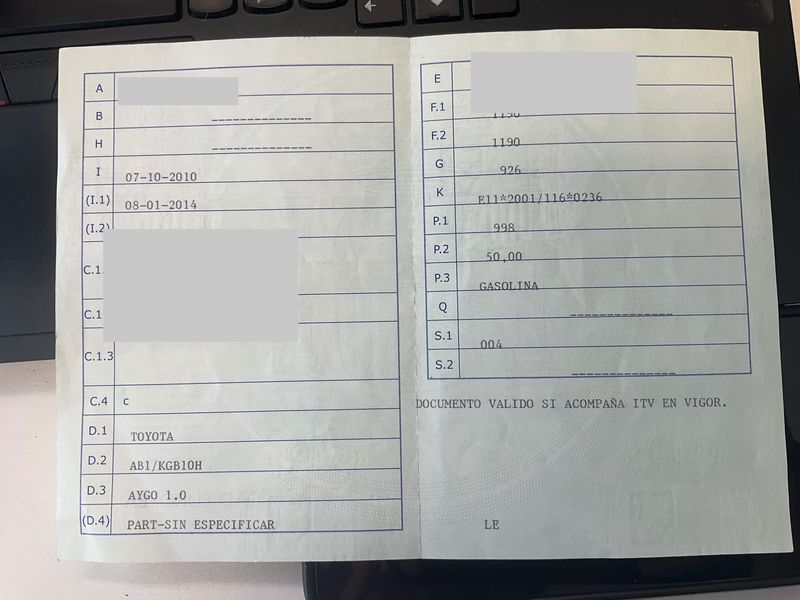 A
B --------------
H --------------
I 07-10-2010
(I.1) 08-01-2014
(I.2)
C.1
C.1
C.1.3
C.4 c
D.1 TOYOTA
D.2 AB1/KGB10H
D.3 AYGO 1.0
(D.4) PART-SIN ESPECIFICAR
E
F.1 1190
F.2 1190
G 926
K E11*2001/116*0236
P.1 998
P.2 50,00
P.3 GASOLINA
Q --------------
S.1 004
S.2 --------------
DOCUMENTO VALIDO SI ACOMPAÑA ITV EN VIGOR.
LE